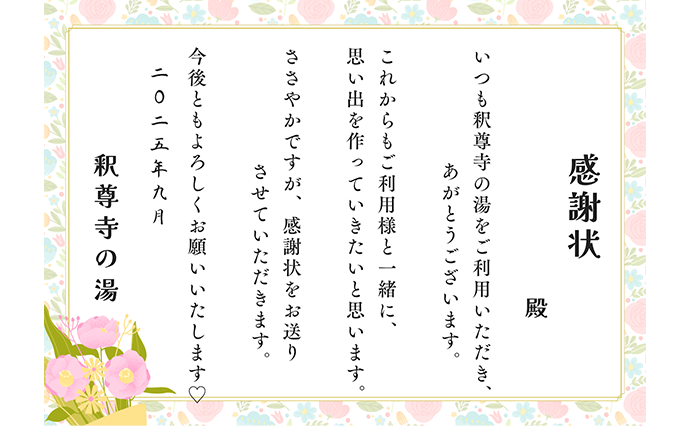 感謝状
殿
いつも釈尊寺の湯をご利用いただき、
あがとうございます。
これからもご利用様と一緒に、
思い出を作っていきたいと思います。
ささやかですが、感謝状をお送り
させていただきます。
今後ともよろしくお願いいたします♡
二〇二五年九月
釈尊寺の湯